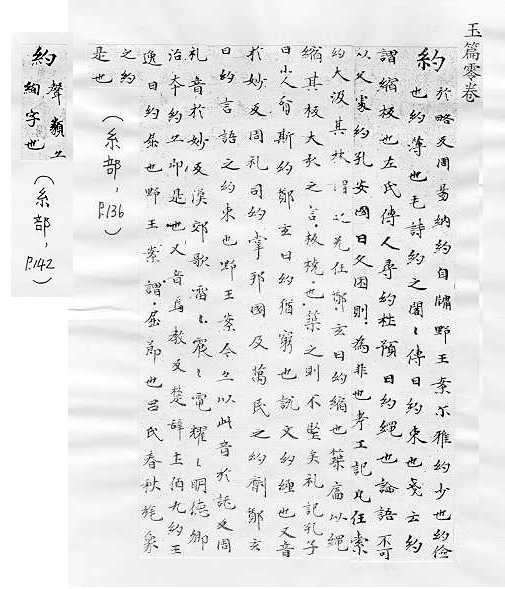 玉篇零卷
約 於略反周易納約自牖野王案尓雅約少也約儉
也約薄也毛詩約之閣〻傳曰約束也戔云約
謂縮板也左氏傳人尋約杜預曰約繩也論語不可
以久處約孔安國曰久困則為非也考工記凡任索
約大汲其板謂之无任鄭玄曰約縮也築以繩
縮其板大引之言板橈也築之則不堅矣礼記孔子
曰小人貧斯約鄭玄曰約猶窮也說文約纏也又音
於妙反周礼司約掌邦國及萬民之約劑鄭玄
曰約言語之約束也野王案今亦以此音於詭反周
礼音於妙反漢郊歌雷〻震〻電耀〻明德鄉
治本約亦卬是也又音為教反楚辭土伯九約王
逸曰約屈也野王案謂屈節也呂氏春秋旄象
之約
是也
(糸部, P.136)
約 聲類亦
絢字也
(糸部, P.142)